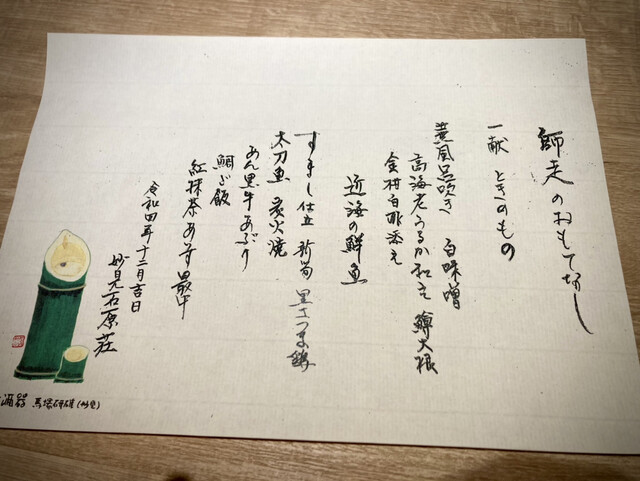 師走のおもてなし
一献 ときのもの
蕪風呂吹き 白味噌
高海老うるか和え 鰤大根
金柑白和添え
近海の鮮魚
すまし仕立 新筍 黒さつま鶏
太刀魚 炭火焼
あん黒牛あぶり
鯛ご飯
紅抹茶あず最中
令和四年十二月吉日
妙見石原荘
酒器